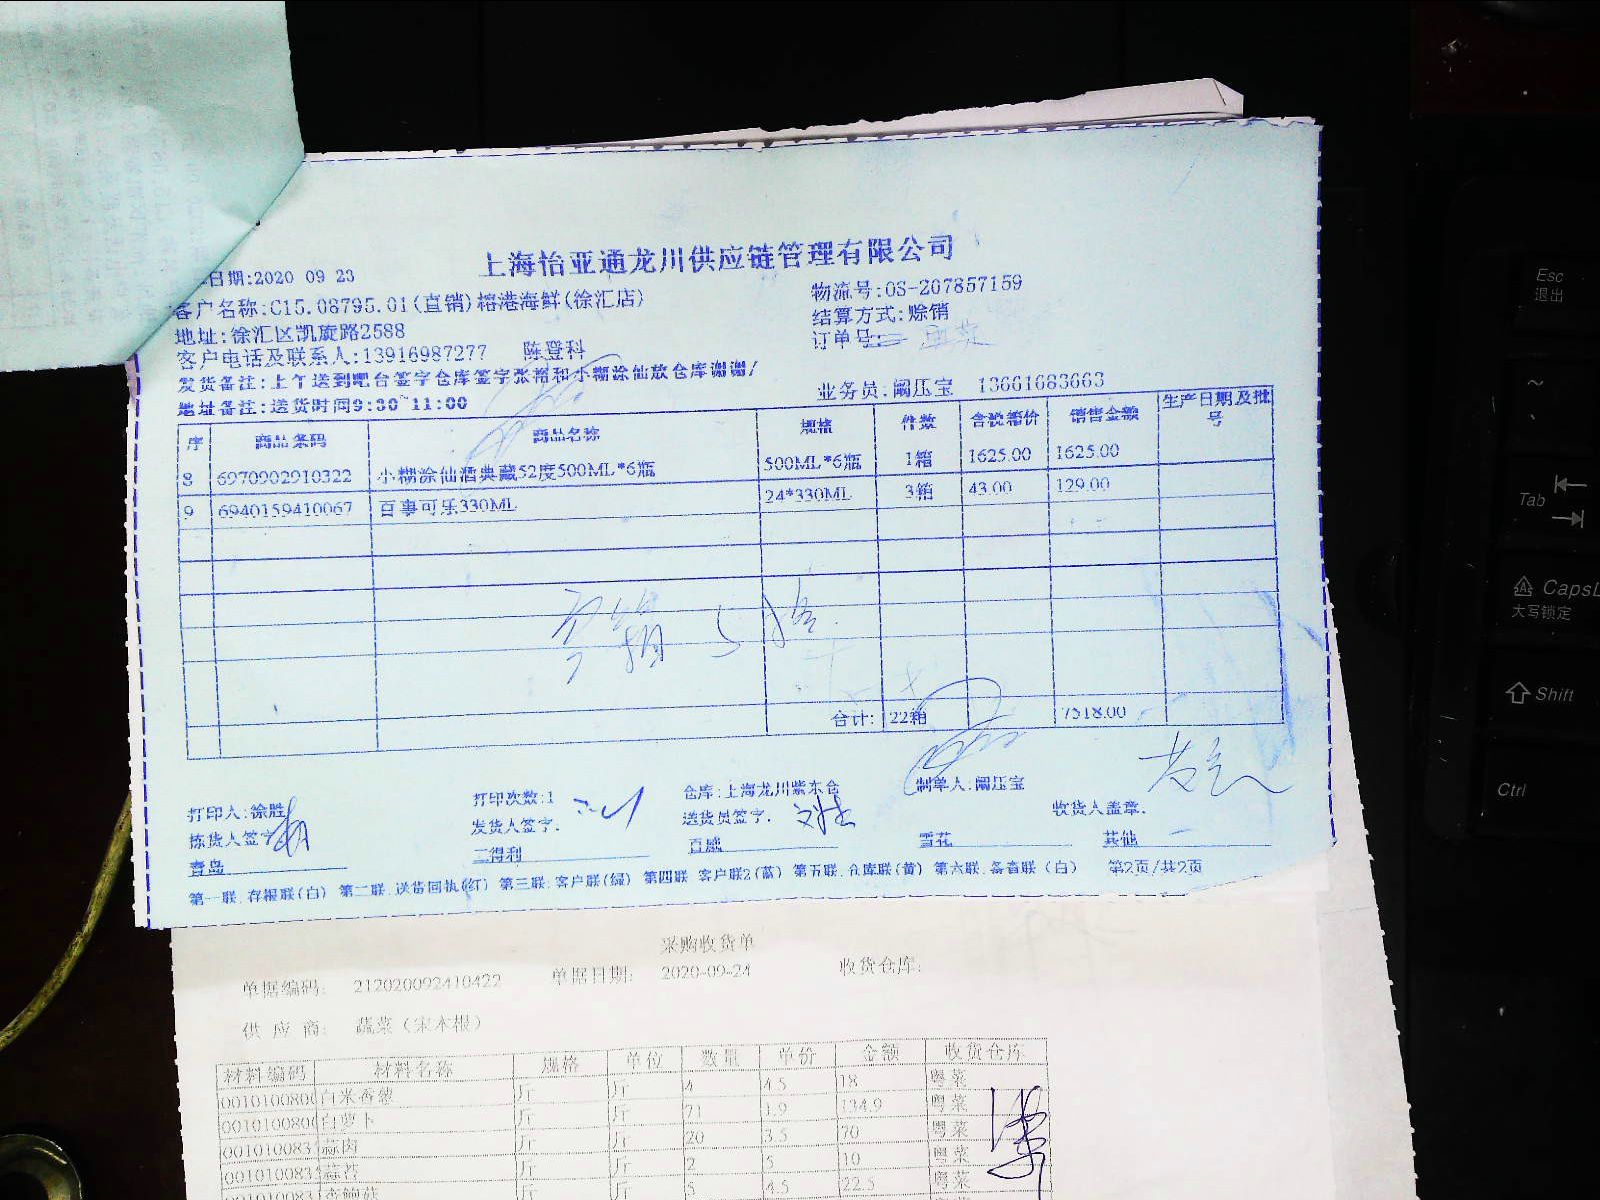 上海怡亚通龙川供应链管理有限公司
日期:2020 09 23
物流号:OS-207857159
客户名称:C15.08795.01(直销)榕港海鲜(徐汇店)
结算方式:赊销
地址:徐汇区凯旋路2588
订单号:
客户电话及联系人:13916987277 陈登科
发货备注:上午送到吧台签字仓库签字张裕和小糊涂仙放仓库谢谢/
业务员:阚压宝 13661683663
地址备注:送货时间9:30~11:00
序 商品条码 商品名称 规格 件数 含税箱价 销售金额 生产日期及批号
8 6970902910322 小糊涂仙酒典藏52度500ML*6瓶 500ML*6瓶 1箱 1625.00 1625.00
9 6940159410067 百事可乐330ML 24*330ML 3箱 43.00 129.00
合计: 22箱 7518.00
打印人:徐胜 打印次数:1 仓库:上海龙川紫东仓 制单人:阚压宝
拣货人签字 发货人签字. 送货员签字. 收货人盖章.
青岛 三得利 百威 雪花 其他
第一联.存根联(白) 第二联.送货回执(红) 第三联:客户联(绿) 第四联 客户联2(蓝) 第五联.仓库联(黄) 第六联.备查联(白) 第2页/共2页
采购收货单
单据编码: 212020092410422 单据日期: 2020-09-24 收货仓库:
供 应 商: 蔬菜(宋本根)
材料编码 材料名称 规格 单位 数量 单价 金额 收货仓库
0010100800 白米香葱 斤 斤 4 4.5 18 粤菜
0010100800 白萝卜 斤 斤 71 1.9 134.9 粤菜
001010083 蒜肉 斤 斤 20 3.5 70 粤菜
001010083 蒜苔 斤 斤 2 5 10 粤菜
001010083 斤 斤 5 4.5 22.5 粤菜
Esc
退出
~
Tab
CapsL
大写锁定
Shift
Ctrl